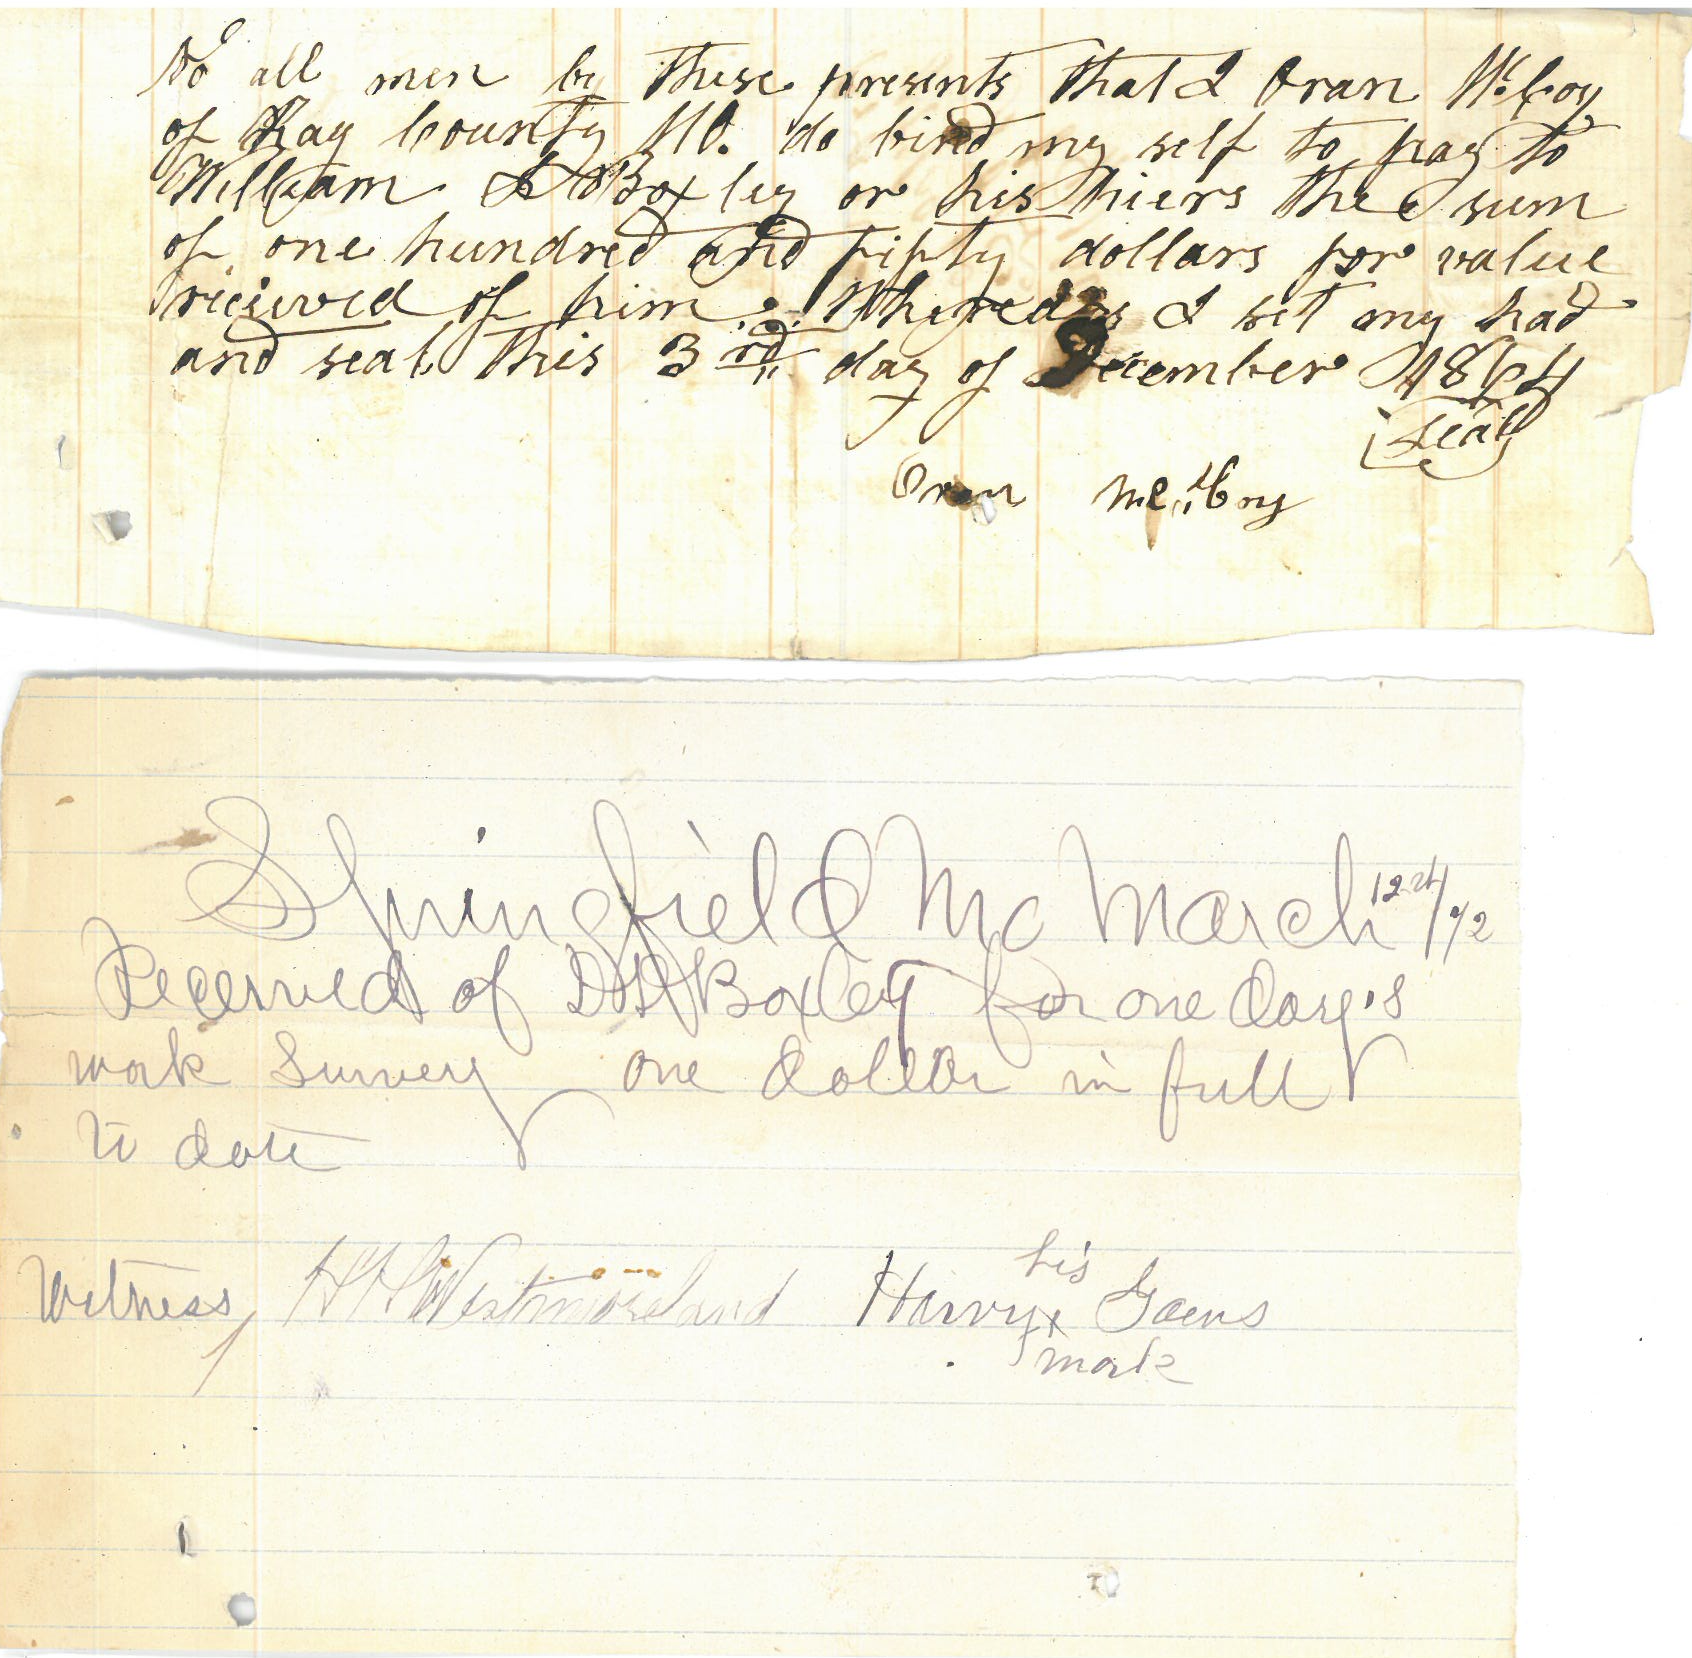 To all men by these presents that I Oran McCoy
of Ray County MO. do bind my self to pay to
William Boxley or his hiers the sum
of one hundred and fifty dollars for value
recieved of him. Whereas I set my had
and seal this 3rd day of December 1864
Seal
Oran McCoy
Springfield Mo March
Received of Boxley for one day's
work Survey one dollar in full
to date
his
Witness H H Westmoreland Harvy x Goens
mark